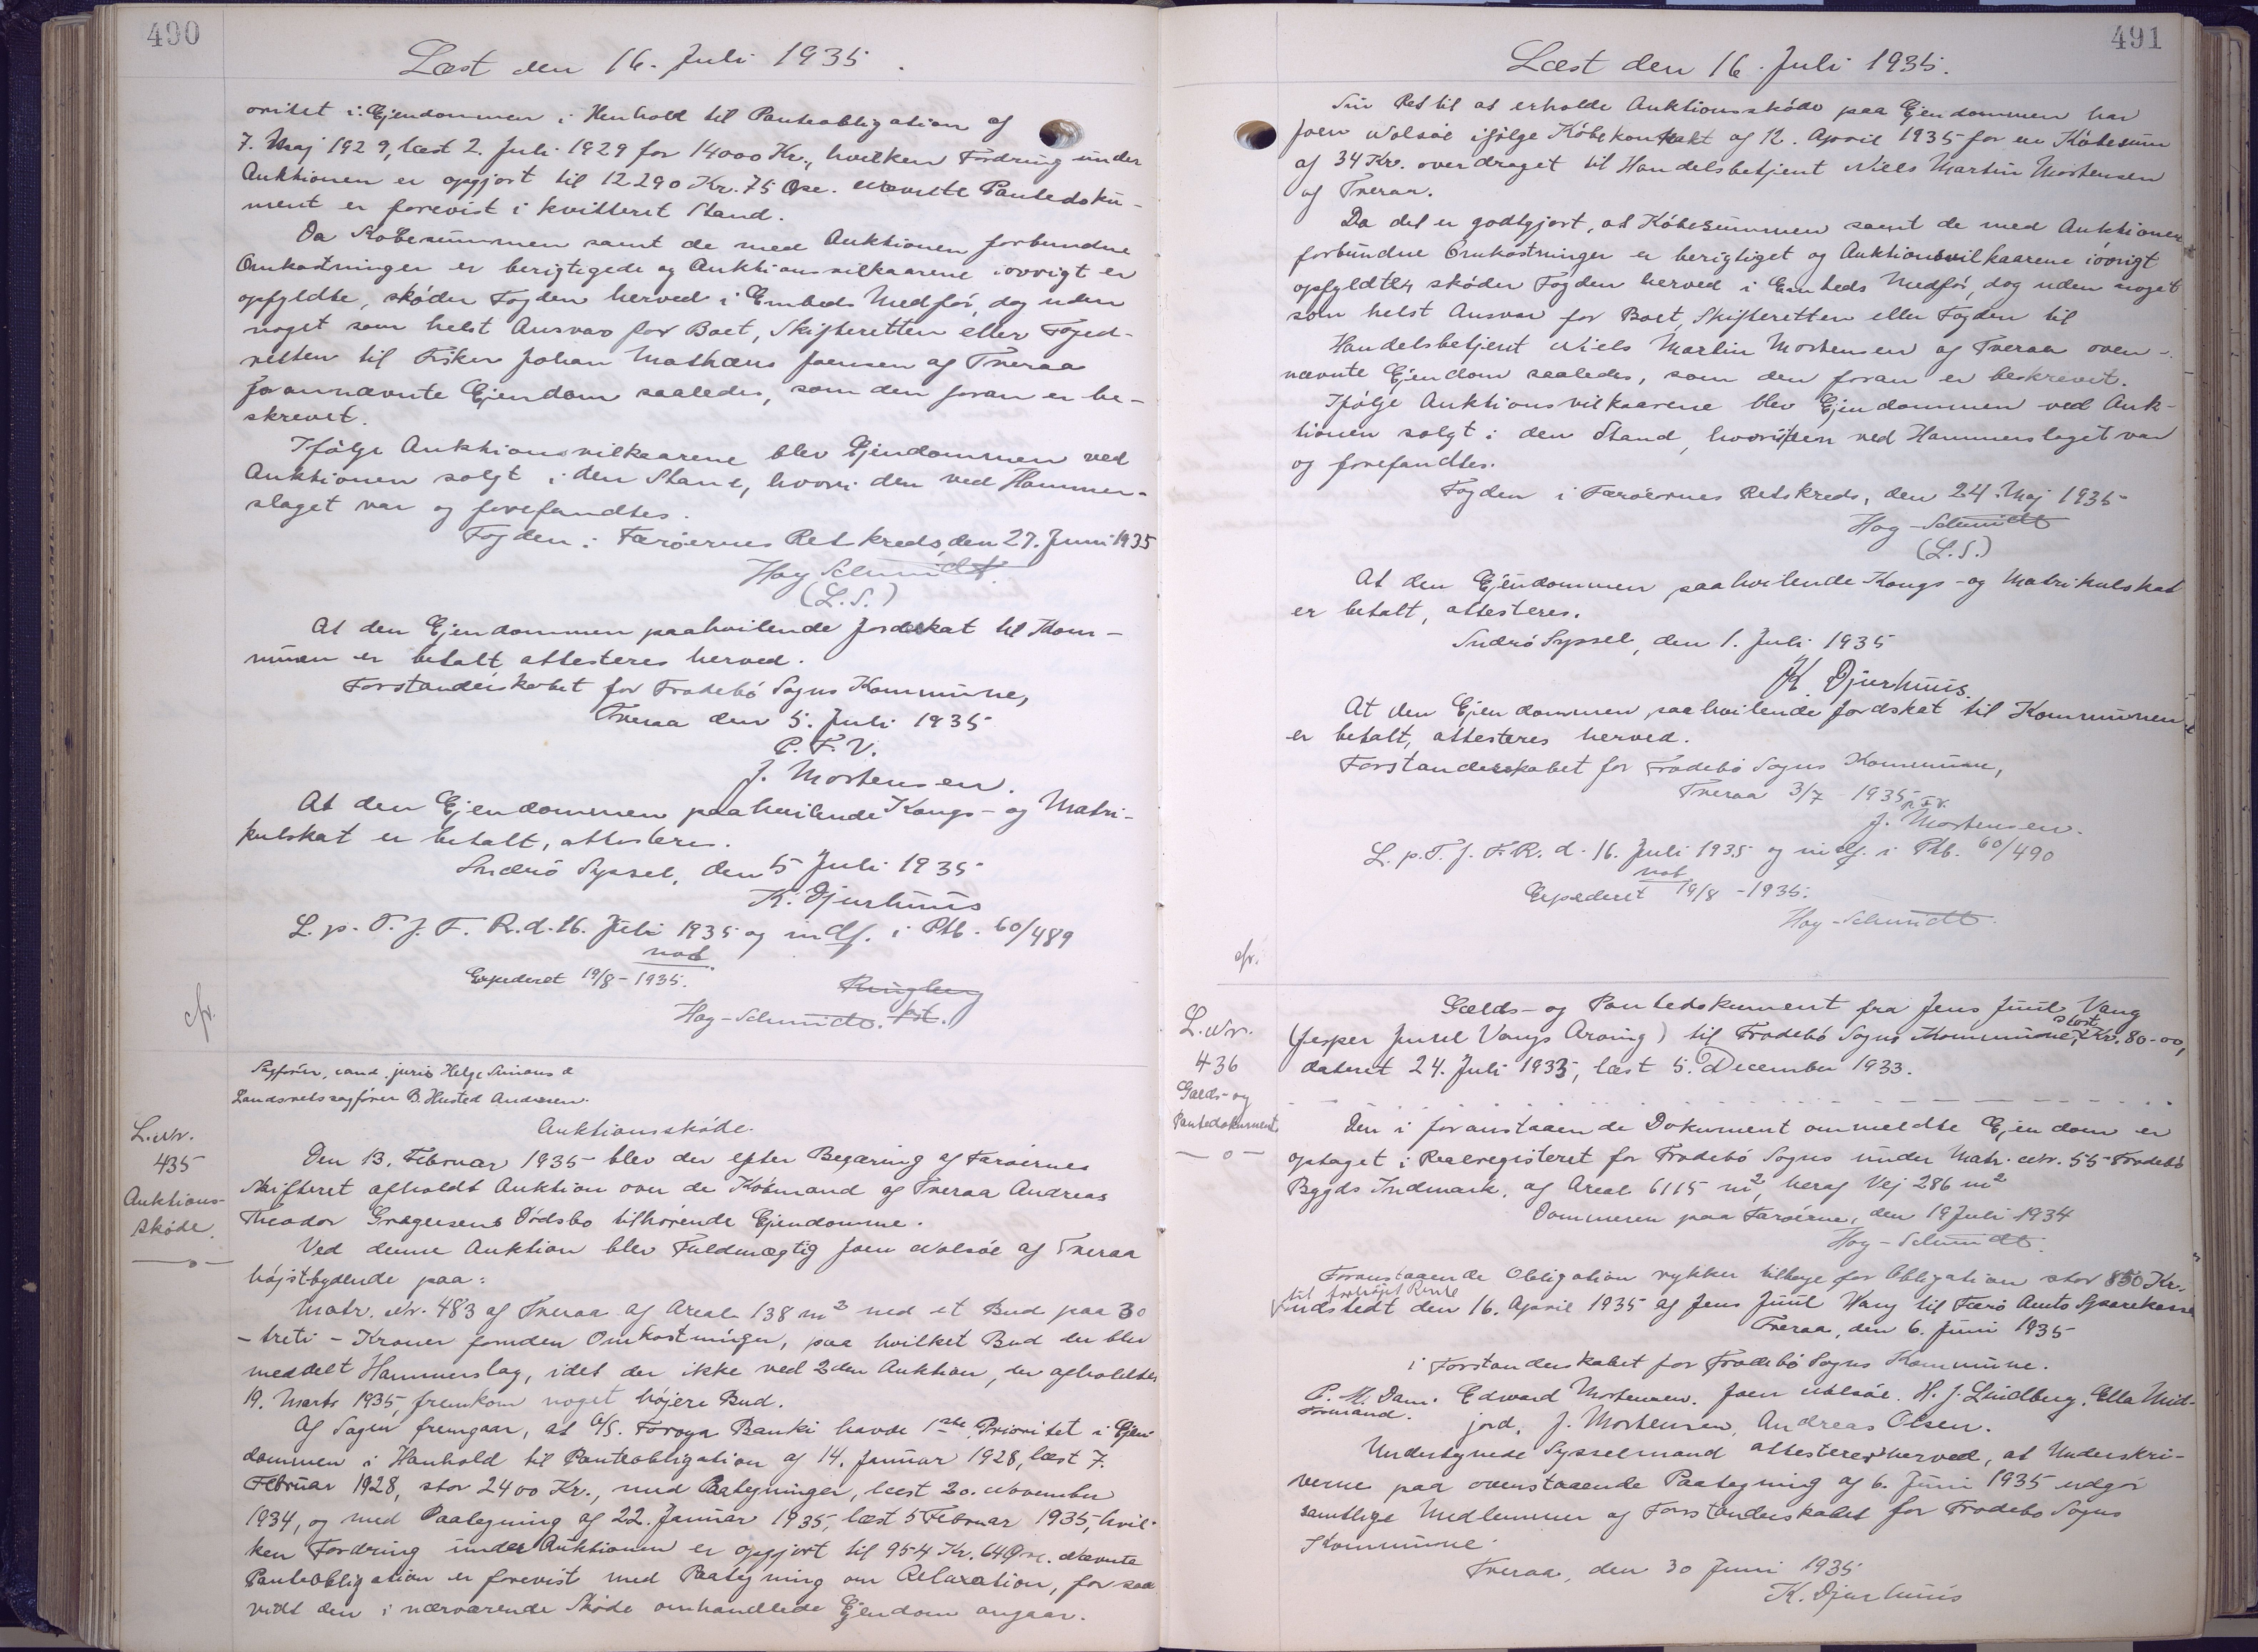 490
Læst den 16. Juli 1935.
oritet i Ejendommen i Henhold til Panteobligation af
7. Maj 1929, læst 2. Juli 1929 for 14000 Kr., hvilken Fordring under
Auktionen er opgjort til 12290 Kr. 75 Øre. Nævnte Pantedoku-
ment er forevist i kvitteret Stand.
Da Købesummen samt de med Auktionen forbundne
Omkostninger er berigtigede og Auktionsvilkaarene iøvrigt er
opfyldte, skøder Fogden herved i Embeds Medfør, dog uden
noget som helst Ansvar for Boet, Skifteretten eller Foged-
retten til Fisker Johan Mathæus Joensen af Tveraa
forannævnte Ejendom saaledes, som den foran er be-
skrevet.
Ifølge Auktionsvilkaarene blev Ejendommen ved
Auktionen solgt i den Stand, hvori den ved Hammer-
slaget var og forefandtes.
Fogden i Færøernes Retskreds, den 27. Juni 1935
Hag-Schmidt
(L.S.)
At den Ejendommen paahvilende Jordskat til Kom-
munen er betalt attesteres herved.
Forstanderskabet for Frodebø Sogns Kommune,
Tveraa den 5. Juli 1935
P.F.V.
J. Mortensen.
At den Ejendommen paahvilende Kongs- og Matri-
kulskat er betalt, attesteres.
Suderø Syssel, den 5 Juli 1935
K. Djurhuus
L. p. T. f. F. R. d. 16. Juli 1935 og indf. i Ptb. 60/489
not
Expederet 19/8-1935.
Ringberg
Hag-Schmidt. fst.
cfr.
Sagfører, cand. juris Helge Simons &
Landsretssagfører B. Husted Andresen.
L. Nr.
435
Auktions-
skøde.
—o—
Auktionsskøde.
Den 13. Februar 1935 blev der efter Begæring af Færøernes
Skifteret afholdt Auktion over de Købmand af Tveraa Andreas
Theodor Gregersens Dødsbo tilhørende Ejendomme.
Ved denne Auktion blev Fuldmægtig Joen Nolsøe af Tveraa
højstbydende paa:
Matr. Nr. 483 af Tveraa af Areal 138 m² med et Bud paa 30
- treti - Kroner foruden Omkostninger, paa hvilket Bud der blev
meddelt Hammerslag, idet der ikke ved 2den Auktion, der afholdtes
19. Marts 1935, fremkom noget højere Bud.
Af Sagen fremgaar, at A/S. Føroya Banki havde 1ste Prioritet i Ejen-
dommen i Henhold til Panteobligation af 14. Januar 1928, læst 7.
Februar 1928, stor 2400 Kr., med Paategninger, læst 20. November
1934, og med Paategning af 22. Januar 1935, læst 5 Februar 1935, hvil-
ken Fordring under Auktionen er opgjort til 954 Kr. 64 Øre. Nævnte
Panteobligation er forevist med Paategning om Relaxation, for saa
vidt den i nærværende Skøde omhandlede Ejendom angaar.
491
Læst den 16. Juli 1935.
Sin Ret til at erholde Auktionsskøde paa Ejendommen har
Joen Nolsøe ifølge Købekontrakt af 12. April 1935 for en Købesum
af 34 Kr. overdraget til Handelsbetjent Niels Martin Mortensen
af Tveraa.
Da det er godtgjort, at Købesummen samt de med Auktionen
forbundne Omkostninger er berigtiget og Auktionsvilkaarene iøvrigt
opfyldte, skøder Fogden herved i Embeds Medfør, dog uden noget
som helst Ansvar for Boet, Skifteretten eller Fogden til
Handelsbetjent Niels Martin Mortensen af Tveraa oven-
nævnte Ejendom saaledes, som den foran er beskrevet.
Ifølge Auktionsvilkaarene blev Ejendommen ved Auk-
tionen solgt i den Stand, hvori den ved Hammerslaget var
og forefandtes.
Fogden i Færøernes Retskreds, den 24. Maj 1935
Hag-Schmidt
(L.S.)
At den Ejendommen paahvilende Kongs- og Matrikulskat
er betalt, attesteres.
Suderø Syssel, den 1. Juli 1935
K. Djurhuus.
At den Ejendommen paahvilende Jordskat til Kommunen
er betalt, attesteres herved.
Forstanderskabet for Frodebø Sogns Kommune,
Tveraa 3/7 - 1935
p.F.V.
J. Mortensen.
L. p. T. f. F. R. d. 16. Juli 1935 og indf. i Ptb. 60/490
not
Expederet 19/8-1935.
Hag-Schmidt
cfr.
L. Nr.
436
Gælds- og
Pantedokument
—o—
Gælds- og Pantedokument fra Jens Juul Vang
(Jesper Juul Vangs Arving) til Frodebø Sogns Kommune, stort Kr. 80-00,
dateret 24. Juli 1933, læst 5. December 1933.
Den i foranstaaende Dokument ommeldte Ejendom er
optaget i Realregisteret for Frodebø Sogns under Matr. Nr. 55 Frodebø
Bygds Indmark, af Areal 6115 m², heraf Vej 286 m²
Dommeren paa Færøerne, den 19 Juli 1934
Hag-Schmidt.
Foranstaaende Obligation rykker tilbage for Obligation stor 850 Kr.
til forhøjet Rente
udstedt den 16. April 1935 af Jens Juul Vang til Færø Amts Sparekasse
Tveraa, den 6. Juni 1935
i Forstanderskabet for Frodebø Sogns Kommune.
P. M. Dam. Edward Mortensen. Joen Nolsøe. H. J. Lindberg. Ella Mid-
Formand.
jord, J. Mortensen, Andreas Olsen.
Undertegnede Sysselmand attesterer herved, at Underskri-
verne paa ovenstaaende Paategning af 6. Juni 1935 udgør
samtlige Medlemmer af Forstanderskabet for Frodebø Sogns
Kommune.
Tveraa, den 30 Juni 1935
K. Djurhuus